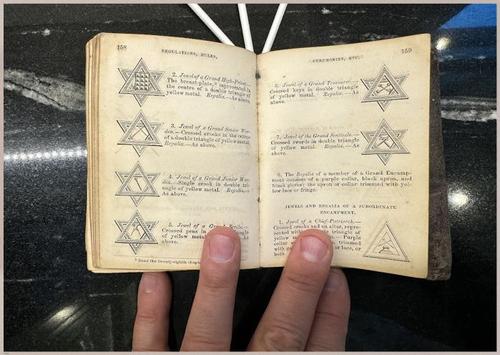 158
REGULATIONS, RULES,
2. Jewel of a Grand High-Priest.—
The breast-plate,* represented in
the centre of a double triangle of
yellow metal. Regalia.—As
above.
3. Jewel of a Grand Senior War-
den.—Crossed crooks in the centre
of a double triangle of yellow metal.
Regalia.—As above.
4. Jewel of a Grand Junior War-
den.—Single crook in double tri-
angle of yellow metal. Regalia.—
As above.
5. Jewel of a Grand Scribe.—
Crossed pens in
of yellow
above.
* Read the twenty-eighth chapter
CEREMONIES, ETC.
159
6. Jewel of a Grand Treasurer.—
Crossed keys in double triangle
of yellow metal. Regalia.—As
above.
7. Jewel of the Grand Sentinels.—
Crossed swords in double triangle
of yellow metal. Regalia.—As
above.
8. The Regalia of a member of a Grand Encamp-
ment consists of a purple collar, black apron, and
black gloves; the apron or collar trimmed with yel-
low lace or fringe.
JEWELS AND REGALIA OF A SUBORDINATE
ENCAMPMENT.
1. Jewel of a Chief-Patriarch.—
Crossed crooks and an altar, repre-
sented
triangle
of yellow
Purple
collar
trimmed
with
lace, or
both